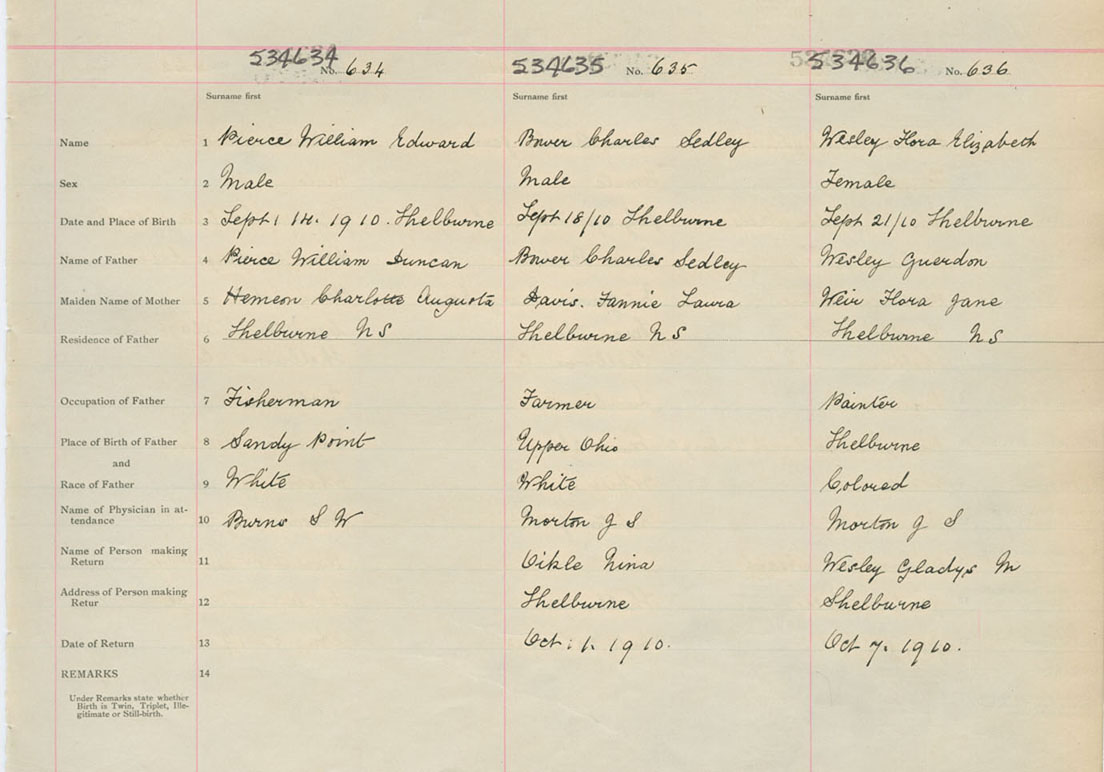 534634 No. 634 534635 No. 635 534636 No. 636
Surname first Surname first Surname first
Name 1 Pierce William Edward Bower Charles Sedley Wesley Flora Elizabeth
Sex 2 Male Male Female
Date and Place of Birth 3 Sept 14. 1910. Shelburne Sept 18/10 Shelburne Sept 21/10 Shelburne
Name of Father 4 Pierce William Duncan Bower Charles Sedley Wesley Guerdon
Maiden Name of Mother 5 Hemeon Charlotte Augusta Davis. Fannie Laura Weir Flora Jane
Residence of Father 6 Shelburne N S Shelburne N S Shelburne N S
Occupation of Father 7 Fisherman Farmer Painter
Place of Birth of Father 8 Sandy Point Upper Ohio Shelburne
and
Race of Father 9 White White Colored
Name of Physician in at-
tendance 10 Burns S W Morton J S Morton J S
Name of Person making
Return 11 Nina Wesley Gladys M
Address of Person making
Retur 12 Shelburne Shelburne
Date of Return 13 Oct. 1910. Oct 7. 1910.
REMARKS 14
Under Remarks state whether
Birth is Twin, Triplet, Ille-
gitimate or Still-birth.